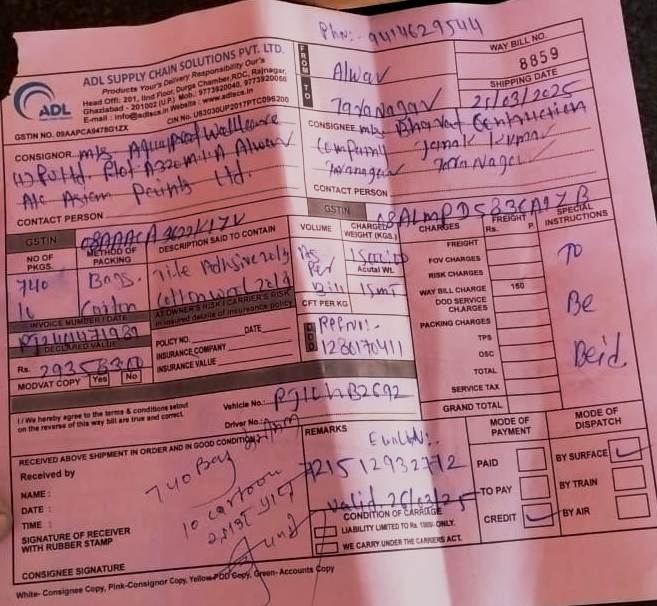 Phn:- 9414629544
ADL
ADL SUPPLY CHAIN SOLUTIONS PVT. LTD.
Products Your's Delivery Responsibility Our's
Head Offi: 201, IInd Floor, Durga Chamber,RDC, Rajnagar,
Ghaziabad - 201002 (U.P.) Mob.: 9773920040, 9773920050
E-mail : info@adlscs.in Website : www.adlscs.in
CIN No. U63030UP2017PTC096200
GSTIN NO. 09AAPCA9478G1ZX
FROM
Alwar
TO
Taranagar
WAY BILL NO.
8859
SHIPPING DATE
25/03/2025
CONSIGNOR
Alwar
A/c Asian Paints Ltd.
CONTACT PERSON
CONSIGNEE M/s Bharat
Company
Kumar
Taranagar
CONTACT PERSON
GSTIN
GSTIN
NO OF PKGS.
METHOD OF PACKING
DESCRIPTION SAID TO CONTAIN
VOLUME
CHARGED WEIGHT (KGS.)
CHARGES
FREIGHT
Rs. P.
SPECIAL INSTRUCTIONS
740 Bags.
10
As Per Bill
Acutal Wt.
15MT
CFT PER KG
FREIGHT
FOV CHARGES
RISK CHARGES
WAY BILL CHARGE 150
DOD SERVICE CHARGES
PACKING CHARGES
TPS
OSC
TOTAL
SERVICE TAX
GRAND TOTAL
To
Be
INVOICE NUMBER / DATE
DECLARED VALUE
Rs.
MODVAT COPY Yes No
AT OWNER'S RISK/CARRIER'S RISK
in insured details of insurance policy
POLICY NO. DATE
INSURANCE COMPANY
INSURANCE VALUE
DOD
Ref No:-
1286170411
I / We hereby agree to the terms & conditions setout
on the reverse of this way bill are true and correct.
Vehicle No.:
Driver No.:
RECEIVED ABOVE SHIPMENT IN ORDER AND IN GOOD CONDITION
Received by
NAME :
DATE :
TIME :
SIGNATURE OF RECEIVER
WITH RUBBER STAMP
CONSIGNEE SIGNATURE
740 Bag
10 cartoon
REMARKS
721512932772
valid
CONDITION OF CARRIAGE
LIABILITY LIMITED TO Rs. 1000/- ONLY.
WE CARRY UNDER THE CARRIERS ACT.
MODE OF PAYMENT
PAID
TO PAY
CREDIT
MODE OF DISPATCH
BY SURFACE
BY TRAIN
BY AIR
White- Consignee Copy, Pink-Consignor Copy, Yellow-POD Copy, Green- Accounts Copy